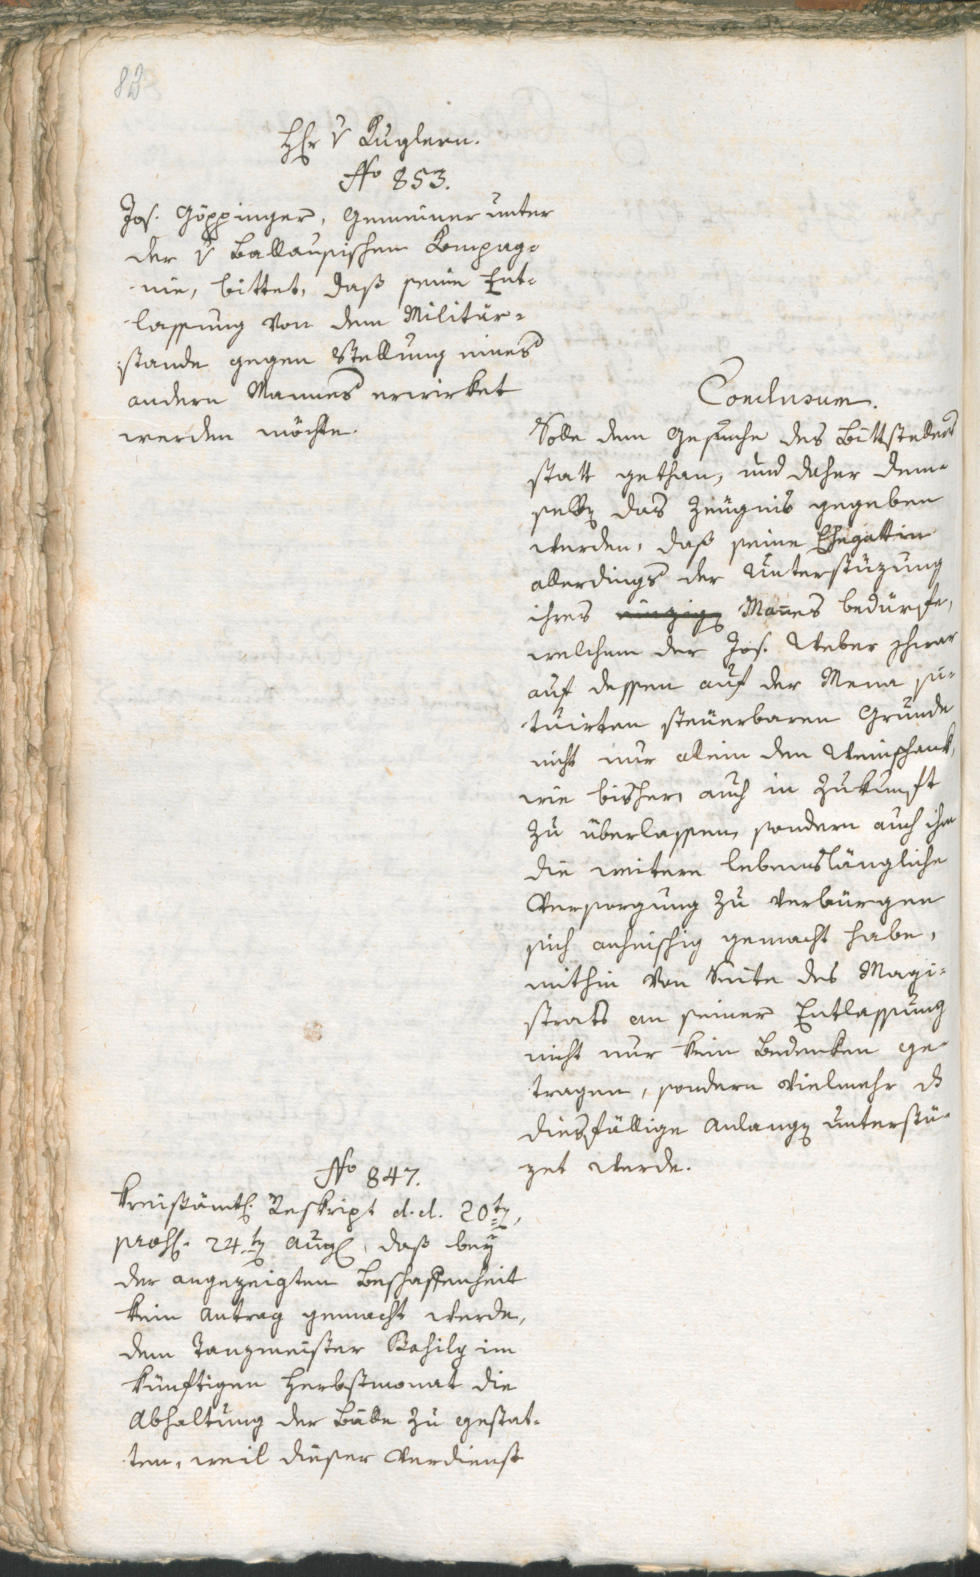 83
Hr v Kuglern.
No 853.
Jos. Göppinger, Gemeiner unter
der v Ballausischen Kompag-
nie, bittet, daß seine Ent-
lassung von dem Militär-
stande gegen Stellung eines
andern Mannes erwirket
werden möchte.
Conclusum.
Solle dem Gesuche des Bittstellers
statt gethan, und daher dem-
selben das Zeugnis gegeben
werden, daß seine Ehegattin
allerdings der Unterstüzung
ihres einzigen Mannes bedürfe,
welchem der Jos. Weber
auf dessen auf der Mena si-
tuirten steuerbaren Grunde
nicht nur allein den Weinschank,
wie bisher, auch in Zukunft
zu überlassen, sondern auch ihm
die weitere lebenslängliche
Versorgung zu verbürgen
sich anheischig gemacht habe,
mithin von Seite des Magi-
strats an seiner Entlassung
nicht nur kein Bedenken ge-
tragen, sondern vielmehr
diesfällige Anlangen unterstü-
zet werde.
No 847.
Kreisämtl. Reskript d. d. 20ten,
24ten Aug., daß bey
der angezeigten Beschaffenheit
kein Antrag gemacht werde,
dem Tanzmeister im
künftigen Herbstmonat die
Abhaltung der Bälle zu gestat-
ten, weil dieser Verdienst